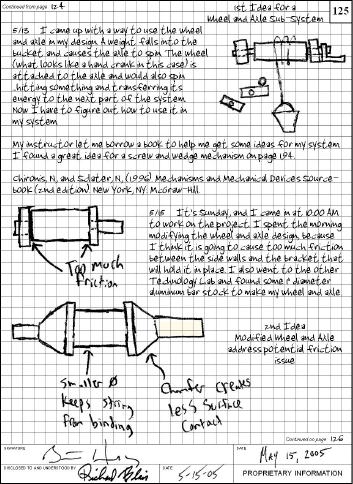 Continued from page 124
125
1st Idea for a
Wheel and Axle Sub-System
5/13 I came up with a way to use the wheel
and axle in my design. A weight falls into the
bucket and causes the axle to spin. The wheel
(what looks like a hand crank in this case) is
attached to the axle and would also spin
hitting something and transferring its
energy to the next part of the system.
Now I have to figure out how to use it in
my system.
My instructor let me borrow a book to help me get some ideas for my system.
I found a great idea for a screw and wedge mechanism on page 194.
Chironis, N., and Sclater, N. (1996). Mechanisms and Mechanical Devices Source-
book (2nd edition). New York, NY: McGraw-Hill.
5/15 It's Sunday, and I came in at 10:00 AM
to work on the project. I spent the morning
modifying the wheel and axle design because
I think it is going to cause too much friction
between the side walls and the bracket that
will hold it in place. I also went to the other
Technology Lab and found some 1" diameter
aluminum bar stock to make my wheel and axle.
Too much
friction
2nd Idea
Modified Wheel and Axle
address potential friction
issue
smaller Ø
keeps string
from binding
Chamfer creates
less surface
contact
Continued on page 126
SIGNATURE
DATE
MAY 15, 2005
DISCLOSED TO AND UNDERSTOOD BY
DATE
5-15-05
PROPRIETARY INFORMATION